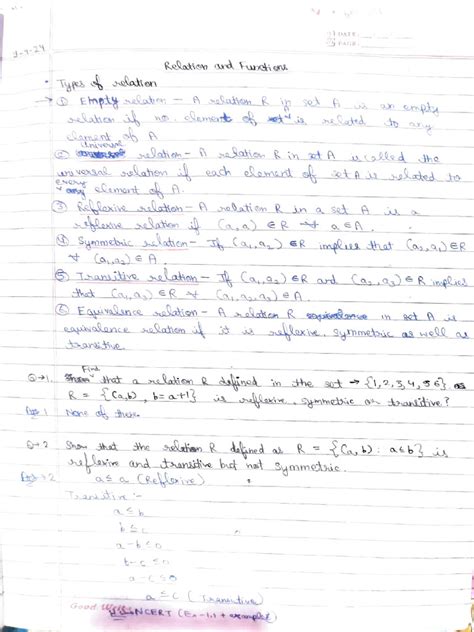 DATE
PAGE
3-7-24
Relation and Functions
Types of relation
→ ① Empty relation - A relation R in set A is an empty
relation if no element of set is related to any
element of A
② universe relation - A relation R in set A is called the
universal relation if each element of set A is related to
every element of A.
③ Reflexive relation - A relation R in a set A is a
reflexive relation if (a, a) ∈ R ∀ a ∈ A.
④ Symmetric relation - If (a₁, a₂) ∈ R implies that (a₂, a₁) ∈ R
∀ (a₁, a₂) ∈ A.
⑤ Transitive relation - If (a₁, a₂) ∈ R and (a₂, a₃) ∈ R implies
that (a₁, a₃) ∈ R ∀ (a₁, a₃) ∈ A.
⑥ Equivalence relation - A relation R in set A is
equivalence relation if it is reflexive, symmetric as well as
transitive.
Q→1. Find that a relation R defined in the set → {1, 2, 3, 4, 5 6} as
R = {(a,b), b = a+1} is reflexive, symmetric or transitive?
1 None of these.
Q→2 Show that the relation R defined as R = {(a, b): a ≤ b} is
reflexive and transitive but not symmetric.
→2 a ≤ a (Reflexive)
Transitive :-
a ≤ b
b ≤ c
a - b ≤ 0
b - c ≤ 0
a - c ≤ 0
a ≤ c (Transitive)
Good
NCERT (Ex-1.1 + examples)